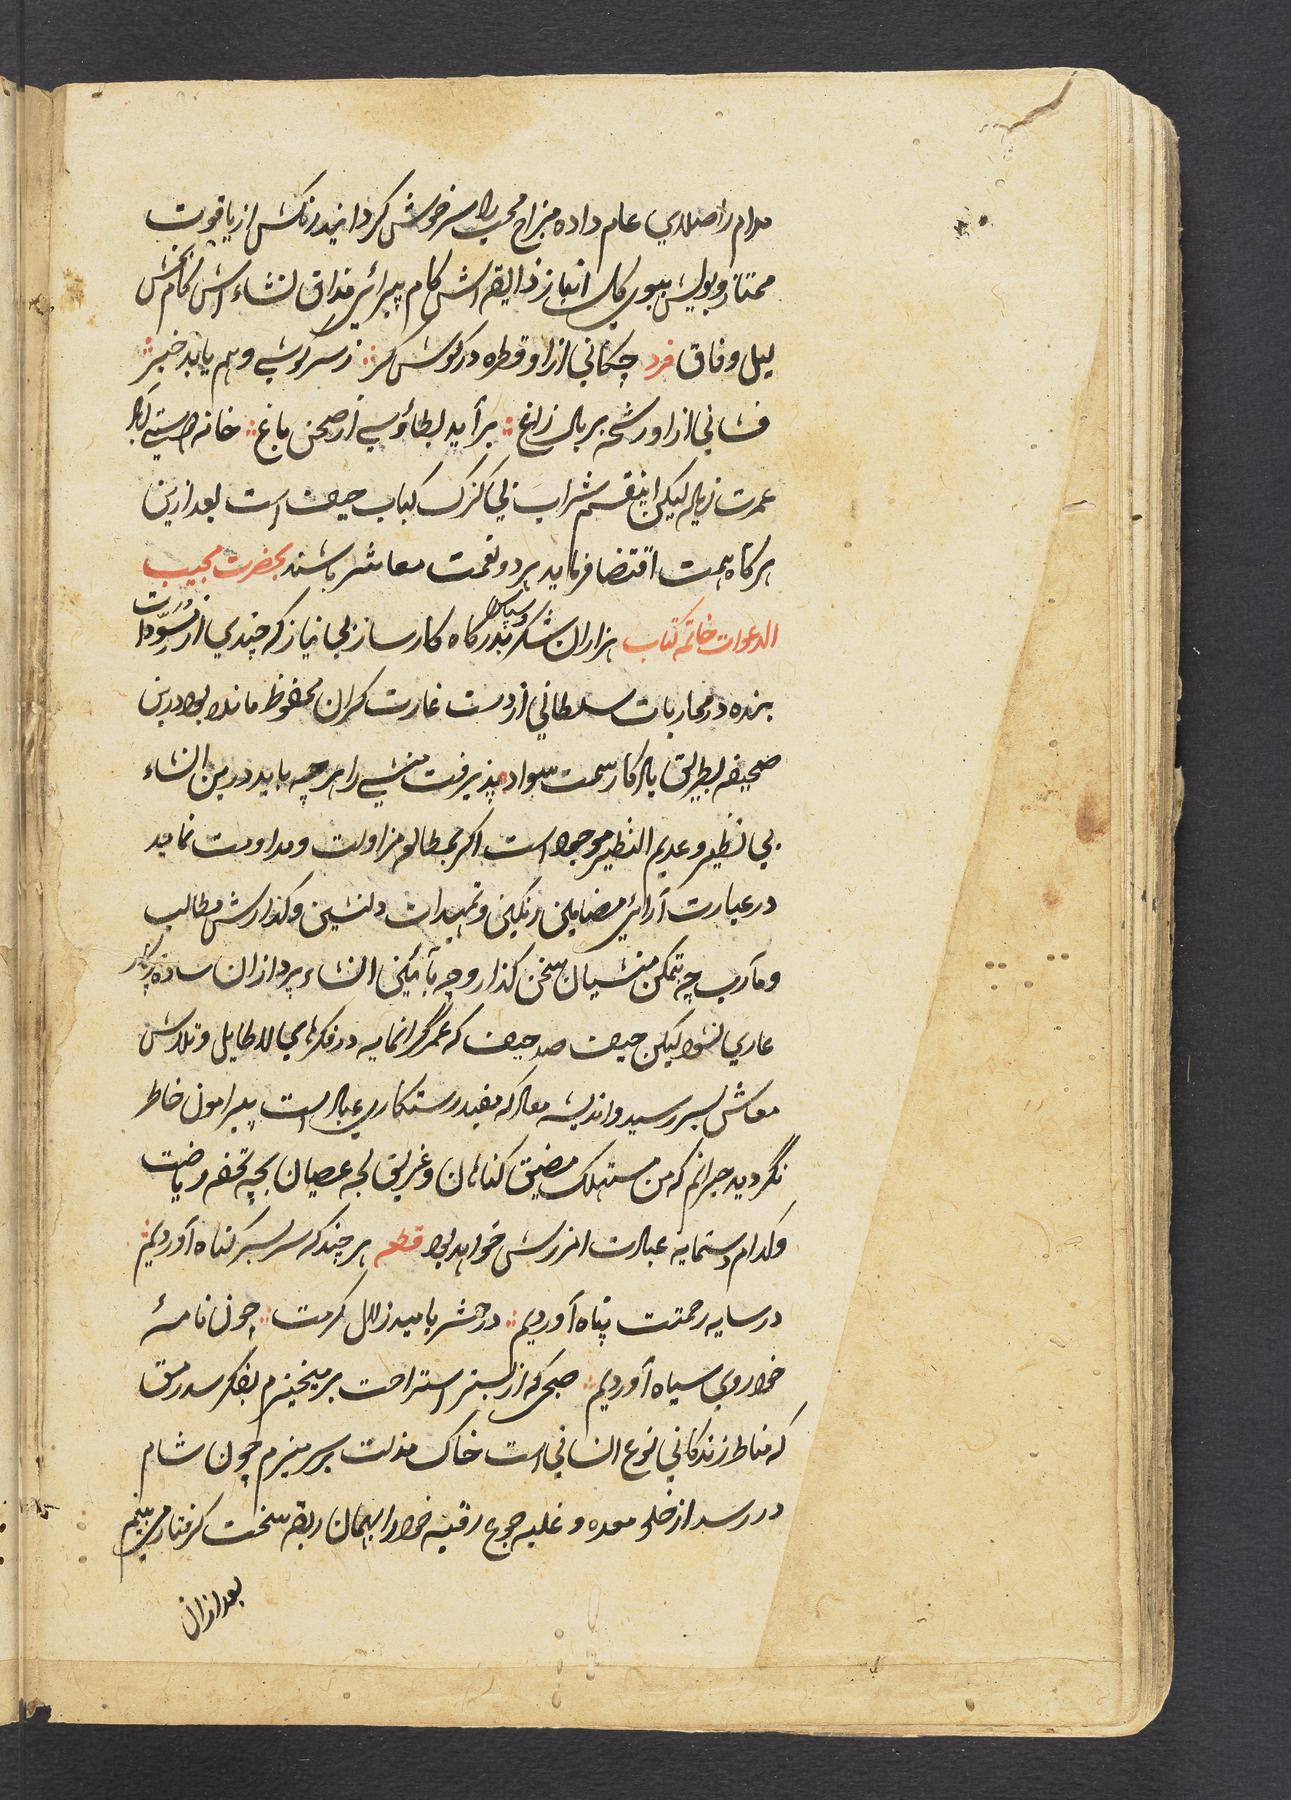 مدام را صلای عام داده مزاج محب را سرخوش گردانید رنگش از یاقوت
ممتاز و بویش ببوی گل انباز ذایقه اش کام پیرائی مذاق نشاء اش کام بخش
لیل وفاق فرد چکانی ازاو قطره در گوش کر ؞ ز سرگوشی وهم یابد خبر ؞
فشانی ازاو رشحه بر بال زاغ ؞ برآید بطاؤسی از صحن باغ ؞ خانه
عمرت زیاد لیکن اینقسم شراب بی گزک کباب حیف است بعد ازین
هرگاه همت اقتضا فرماید بهر دو نعمت معاشر باشند بحضرت مجیب
الدعوات خاتمه کتاب هزاران شکر و سپاس بدرگاه کارساز بی نیاز که چندی از مسودات
بنده در محاربات سلطانی از دست غارت گران محفوظ مانده بود درین
صحیفه بطریق یادگار سمت سواد پذیرفت منشی را هرچه باید درین انشاء
بی نظیر و عدیم النظیر موجود است اگر بمطالعه مزاولت و مداومت نماید
در عبارت آرائی مضامین رنگین و تمهیدات دلنشین و گذارش مطالب
و مآرب چه تمکن منشیان سخن گذار و چه بآئین انشاء پردازان ساده پرکار
عاری نشود لیکن حیف صد حیف که عمر گرانمایه در فکرهای لاطایل و تلاش
معاش بسر رسید و اندیشه معاد که مفید رستگاری عباد است پیرامون خاطر
نگردید حیرانم که من مستهلک مضیق گناهان و غریق لجه عصیان بچه تحفه ریاضت
و کدام دستمایه عبادت امرزش خواهد بود قطعه هر چند که سربسر گناه آوردیم ؞
در سایه رحمتت پناه آوردیم ؞ در حشر بامید زلال کرمت ؞ چون نامهٔ
خود روی سیاه آوردیم ؞ صبحی که از بستر استراحت برمیخیزم بفکر سد رمق
که مناط زندگانی نوع انسانی است خاک مذلت بر سر میزم چون شام
در رسد از خلو معده و غلبه جوع رقبه خود را بهمان ربقه سخت گرفتار می بینم
بعد ازان